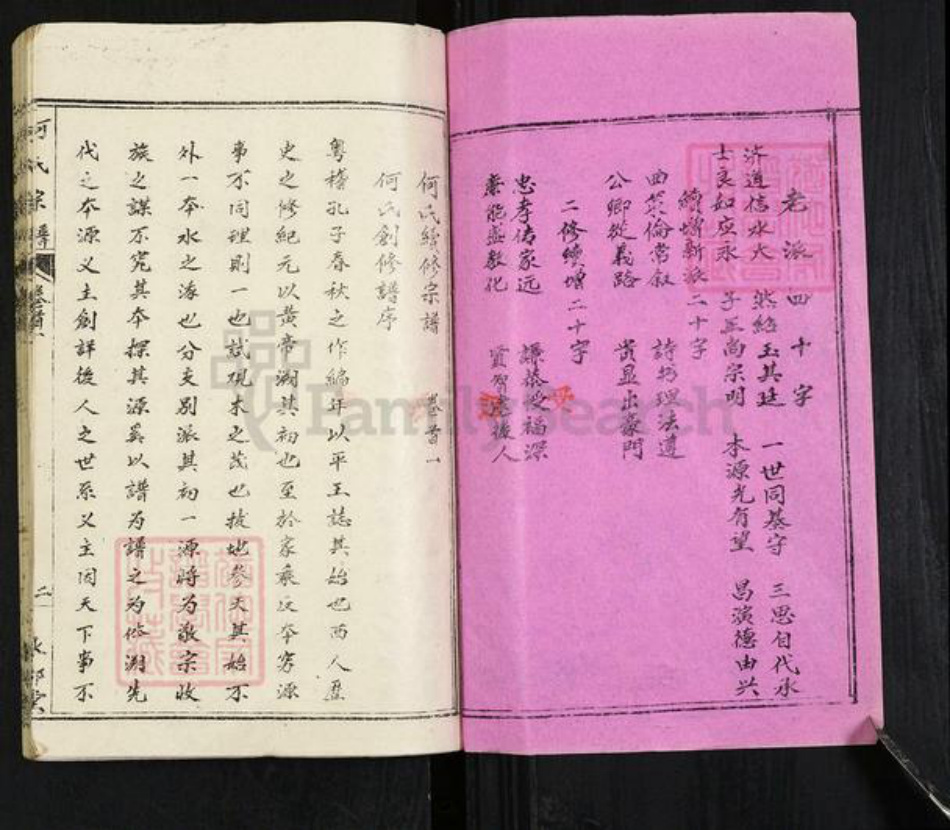 老派四十字
济道信水大 然絽玉其廷 一世同基守 三思自代水
士良如应永 子正尚宗明 本源光有望 昌演德由兴
續增新派二十字
曲笑倫常叙 詩教理法遵
公卿從義路 贵显出豪門
二修續增二十字
忠孝传家远 謙恭受福深
泰能盛教化 賢智德後人
何氏續修宗譜 卷首一
何氏創修譜序
粤稽孔子春秋之作編年以平王誌其始也西人歷
史之修紀元以黄帝溯其初也至於家乘反本穷源
事不同理則一也試观木之茂也拔地参天其始不
外一本水之海也分支别派其初一源將为敬宗收
族之謀不究其本探其源奚以譜为譜之为修溯先
代之本源义主創詳後人之世系义主因天下事不
何氏宗譜 卷首
二
FamilySearch